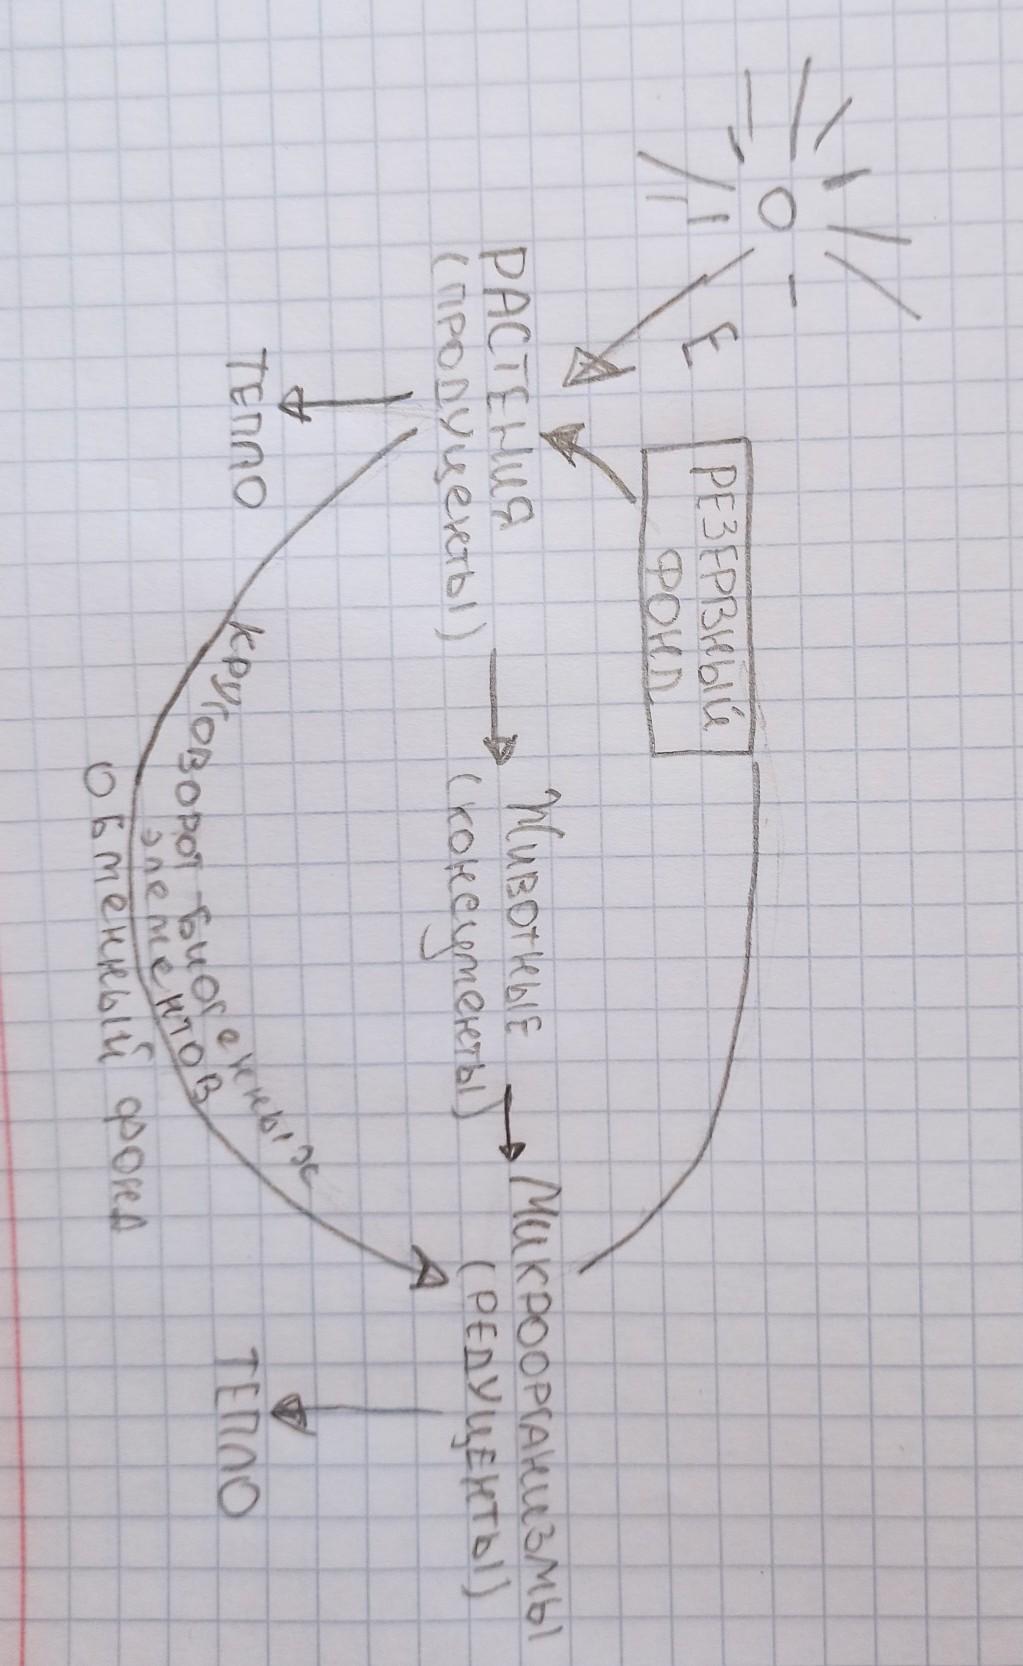 Е
РЕЗЕРВНЫЙ
ФОНД
РАСТЕНИЯ
(продуценты)
Животные
(консументы)
Микроорганизмы
(редуценты)
ТЕПЛО
ТЕПЛО
круговорот биогенных
элементов
Обменный фонд